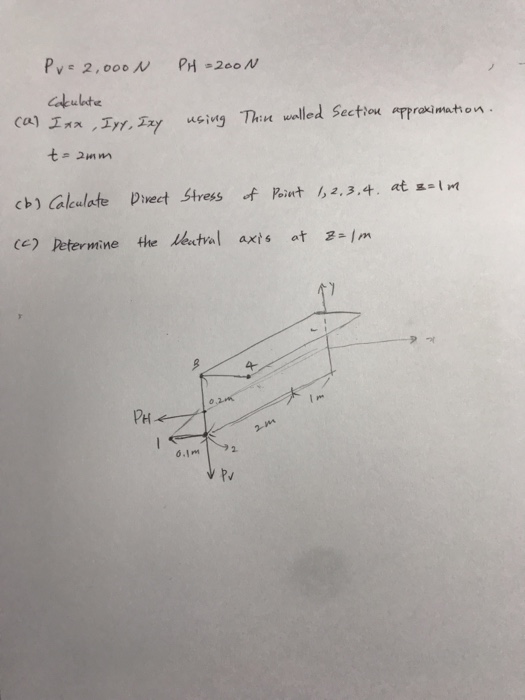 Pv = 2,000 N PH = 200 N
Calculate
(a) Ixx, Iyy, Ixy using Thin walled Section approximation.
t = 2mm
(b) Calculate Direct Stress of Point 1, 2, 3, 4. at z = 1m
(c) Determine the Neutral axis at z = 1m
y
x
3
4
0.2m
1m
PH
2m
1
2
0.1m
Pv